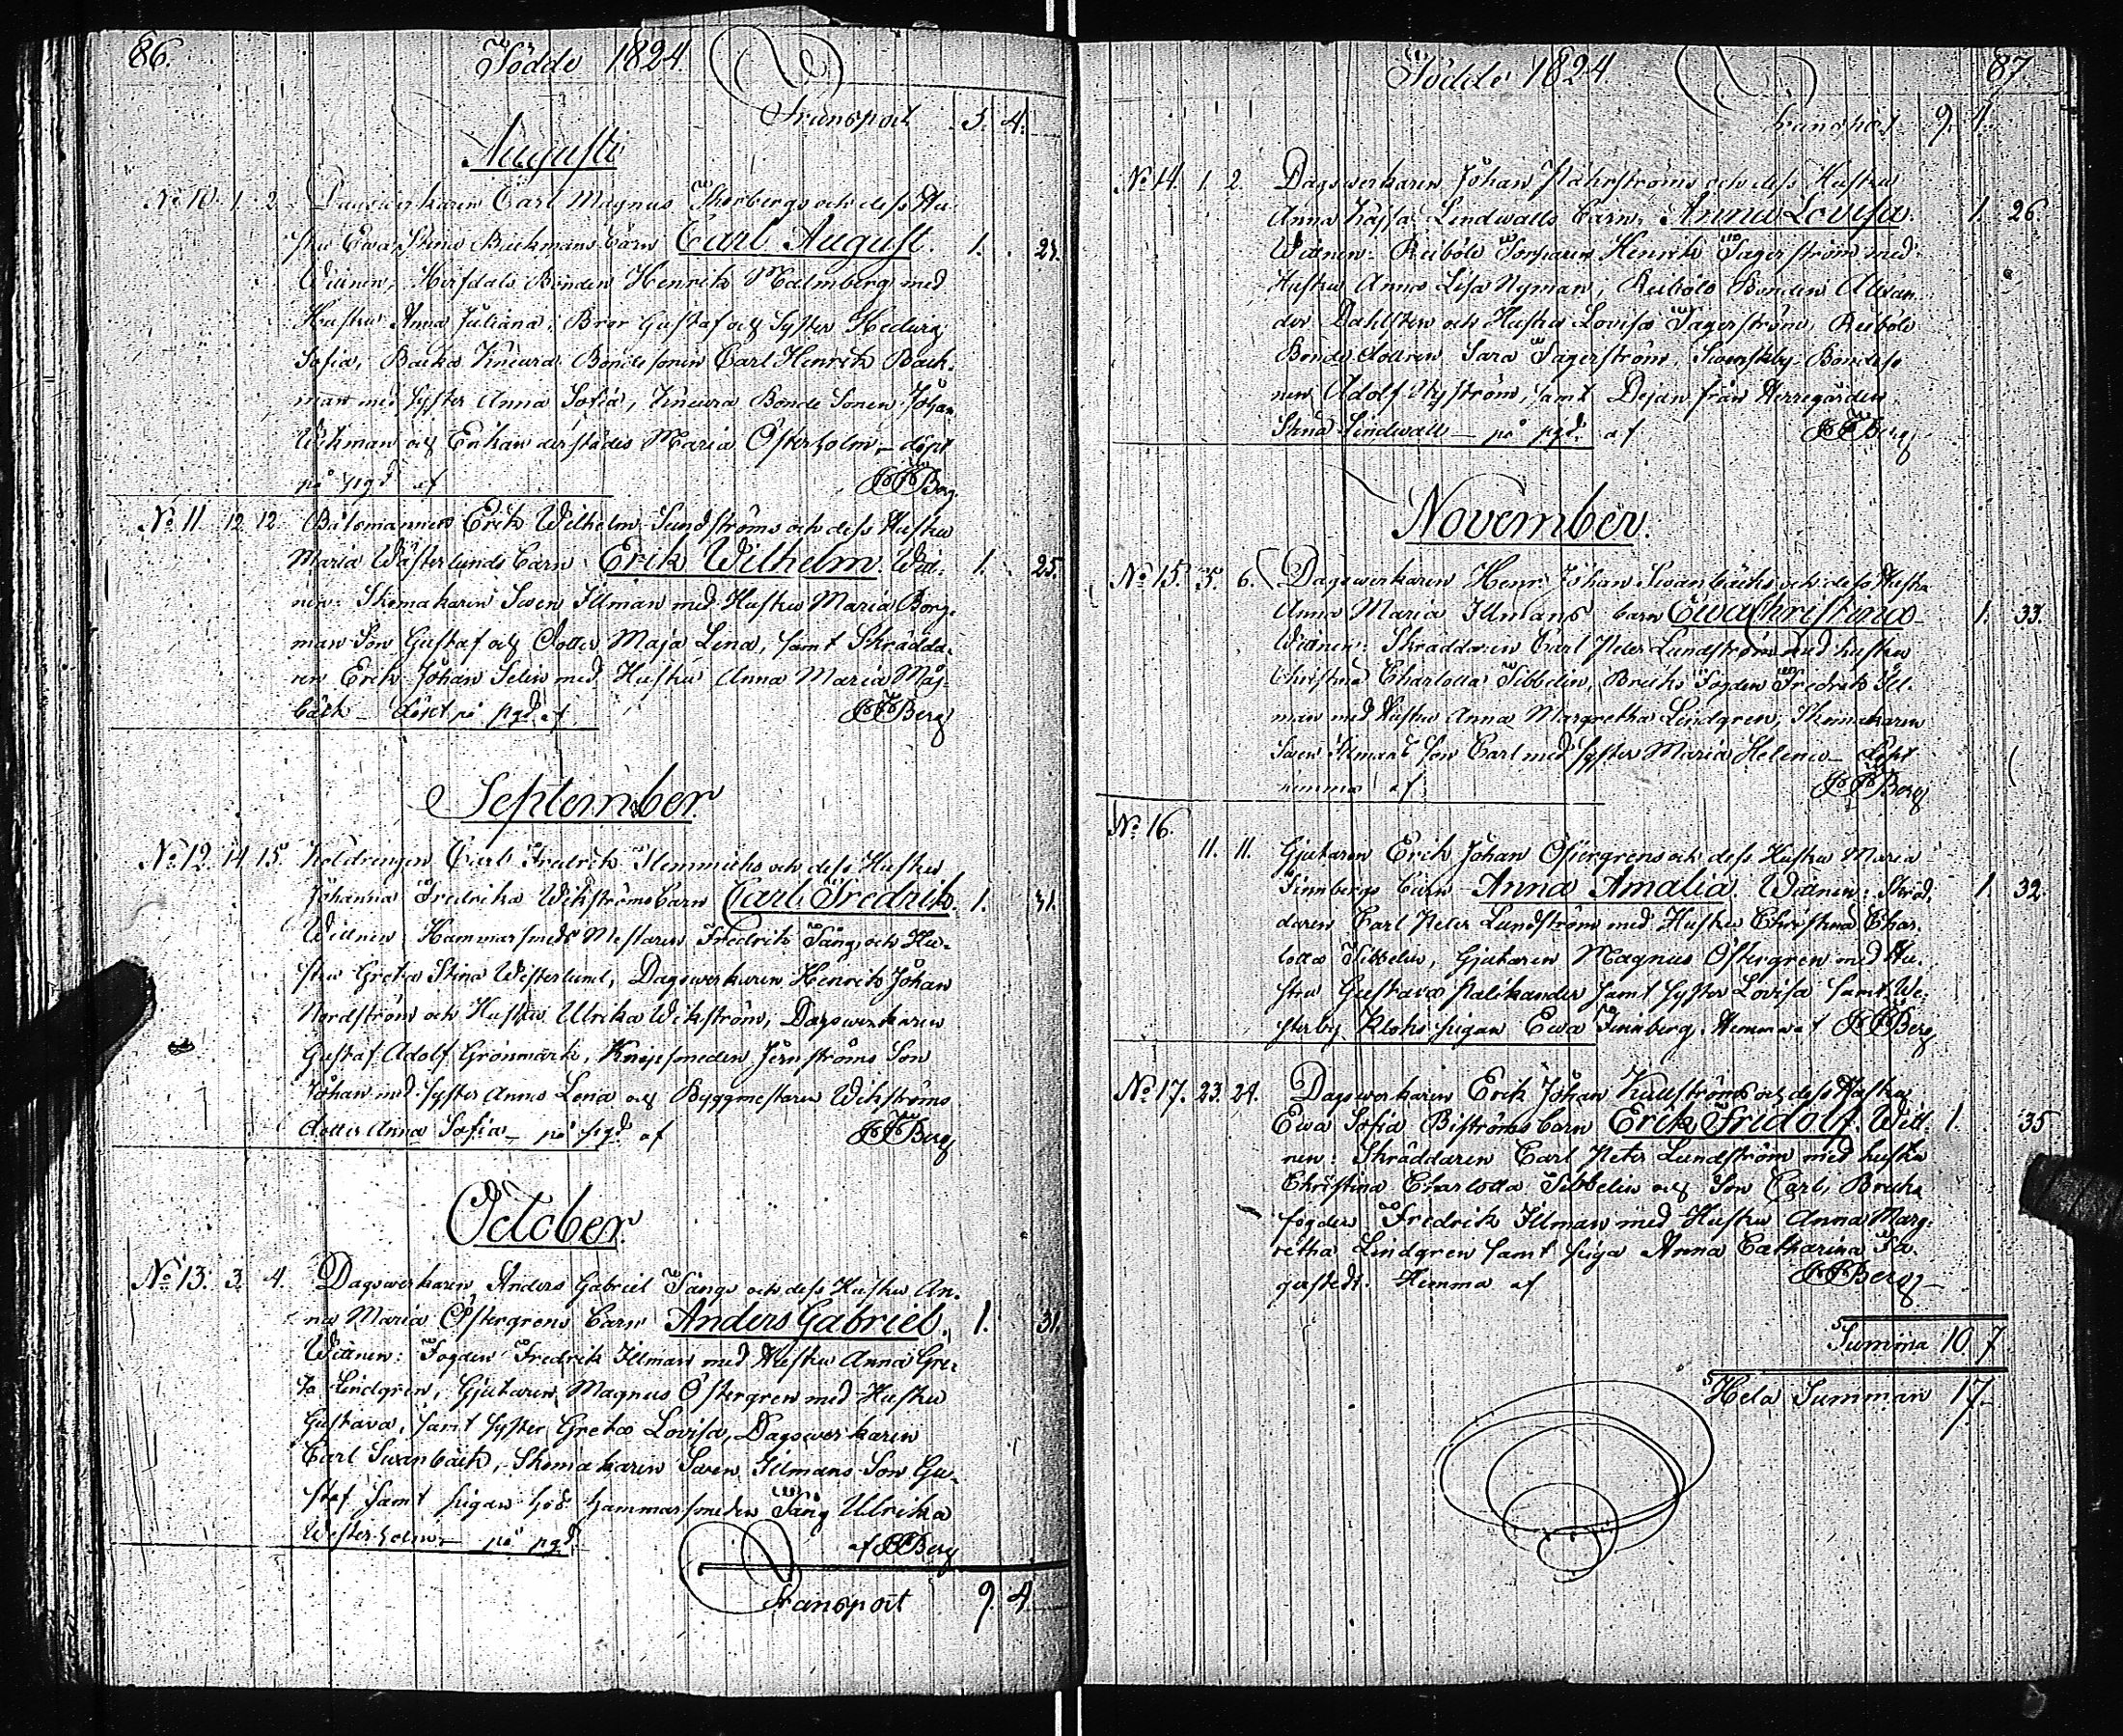 86.
Födde 1824
Transport 5. 4.
Augusti
No 10. 1. 2. Dagswerkaren Carl Magnus Skorbergs och dess Hu-
stru Ewa Stina Backmans barn Carl August. 1.
Wittnen, Bonden Henrik Malmberg med
Hustru Anna Juliana, Bror Gustaf och Syster Hedwig
Sofia, Backa Bondesonen Carl Henrik Back-
man med Syster Anna Sofia, Bonde Sonen Johan
Wikman och Enkan derstädes Maria Österholm, döpt
på pgd af JFBerg
No 11. 12 12. Båtsmannen Erik Wilhelm Sundströms och dess Hustru
Maria Wästerlunds barn Erik Wilhelm. Witt- 1. 25.
nen: Skomakaren Swen Illman med Hustru Maria Borg-
man Son Gustaf och Dotter Maja Lena, samt Skrädda-
ren Erik Johan Selin med Hustru Anna Maria Må-
bäck – döpt på pgd. af JFBerg
September
No 12. 14 15. Koldrengen Carl Fredrik Flemmichs och dess Hustru
Johanna Fredrika Wikströms barn Carl Fredrik. 1.
Wittnen: Hammarsmeds Mestaren Fredrik Fång och Hu-
stru Greta Stina Westerlund, Dagswerkaren Henrik Johan
Nordström och Hustru Ulrika Wikström, Dagswerkaren
Gustaf Adolf Grönmark, Knipsmeden Jernströms Son
Johan med Syster Anna Lena och Byggmestaren Wikströms
dotter Anna Sofia – på pigd af JFBerg
October
No 13. 3. 4. Dagswerkaren Anders Gabriel Fångs och dess Hustru An-
na Maria Östergrens barn Anders Gabriel. 1. 31.
Wittnen: Fogden Fredrik Illman med Hustru Anna Gre-
ta Lindgren, Gjutaren Magnus Östergren med Hustru
Gustava, samt Syster Greta Lovisa, Dagswerkaren
Carl Swanbäck, Skomakaren Swen Illmans Son Gu-
staf samt pigan hos hammarsmeden Fång Ulrika
Westerholm – på pgd. af JFBerg
Transport 9. 4.
Födde 1824
87.
Transport 9. 4.
No 14. 1. 2. Dagswerkaren Johan Påhrströms och dess Hustru
Anna Kajsa Lindwalls barn Anna Lovisa. 1. 26.
Wittnen: Reiböle Torparen Henrik Fagerström med
Hustru Anna Lisa Nyman, Reiböle Bonden Alexan-
der Dahlsten och Hustru Lovisa Fagerström, Reiböle
Bonde dottren Sara Fagerström, Swenskby Bondeso-
nen Adolf Nyström, samt Dejan från Herregården
Stina Lindwall – på pgd. af JFBerg
November.
No 15. 5. 6. Dagswerkaren Henr. Johan Swanbäcks och dess Hustru
Anna Maria Illmans barn Ewa Christina 1. 33.
Wittnen: Skräddaren Carl Peter Lundström med hustru
Christina Charlotta Sibbelin, Bruks Fogden Fredrik Ill-
man med Hustru Anna Margretha Lindgren, Skomakaren
Swen Illmans Son Carl med Syster Maria Helena – döpt
hemma af JFBerg
No 16.
11. 11. Gjutaren Erik Johan Östergrens och dess Hustru Maria
Finnbergs barn Anna Amalia. Wittnen: Skräd- 1. 32.
daren Carl Peter Lundström med Hustru Christina Char-
lotta Sibbelin, Gjutaren Magnus Östergren med Hu-
stru Gustava Palikander samt Syster Lovisa samt We-
sterby Kloks pigan Ewa Finnberg. Hemma af JFBerg
No 17. 23. 24. Dagswerkaren Erik Johan Kullströms och dess Hustru
Ewa Sofia Biströms barn Erik Fridolf. Witt- 1. 35
nen: Skräddaren Carl Peter Lundström med hustru
Christina Charlotta Sibbelin och Son Carl, Bruks
fogden Fredrik Illman med Hustru Anna Marg-
retha Lindgren samt piga Anna Catharina Fa-
gerstedt. Hemma af JFBerg
Summa 10 7
Hela Summan 17.